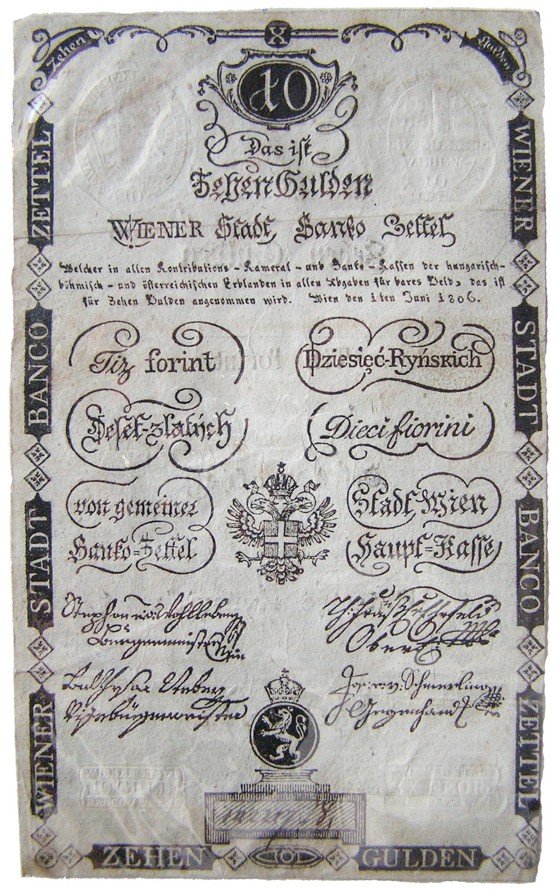 Zehen X Gulden
10
Das ist
Zehen Gulden
WIENER Stadt Banko Zettel
Welcher in allen Kontributions - Kameral - und Banko - Kassen der hungarisch-
böhmisch - und österreichischen Erblanden in allen Abgaben für bares Geld, das ist
für Zehen Gulden angenommen wird. Wien den 1ten Juni 1806.
Tiz forint
Dziesięć-Ryńskich
Deset-zlatých
Dieci fiorini
von gemeiner
Stadt Wien
Banko-Zettel
Haupt-Kasse
WIENER STADT BANCO ZETTEL
WIENER STADT BANCO ZETTEL
Stephan
Burgermeister
Ober
Vizebürgermeister
Gegenhandl
ZEHEN 10 GULDEN